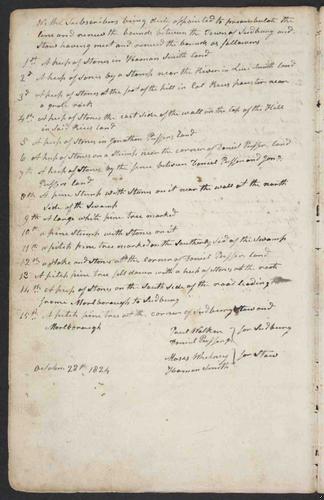 We the Subscribers being duly appointed to preambulate the
line and renued the bounds between the Towns of Sudbury and
Stow having met and renued the bounds as followes
1st A heap of Stones in Haman Smith land
2d A heap of Stones by a Stump near the River in Smith land
3d A heap of Stones at the foot of the hill in Rices pasture near
a rock
4th A heap of Stones the east side of the wall on the top of the Hill
in Said Rices land
5 A heap of Stones on Jonathan Puffers land
6 A heap of Stones on a Stump near the corner of Daniel Puffer land
7th A heap of Stones by the fence between Daniel Puffer and Jona
Puffers land
8th A pine Stump with Stones on it near the wall at the north
Side of the Swamp
9th A large white pine tree marked
10 a pine Stump with Stones on it
11th a pitch pine tree marked on the Southerly Side of the Swamp
12th a Stake and Stones at the corner of Daniel Puffer land
13 A pitch pine tree fell down with a heap of Stones at the root
14th A heap of Stones on the South Side of the road leading
from Marlborough to Sudbury
15th A pitch pine tree at the corner of Sudbury Stow and
Marlborough
Paul Walker
Daniel Puffer } for Sudbury
Moses Whitney
Haman Smith } for Stow
October 28th 1824